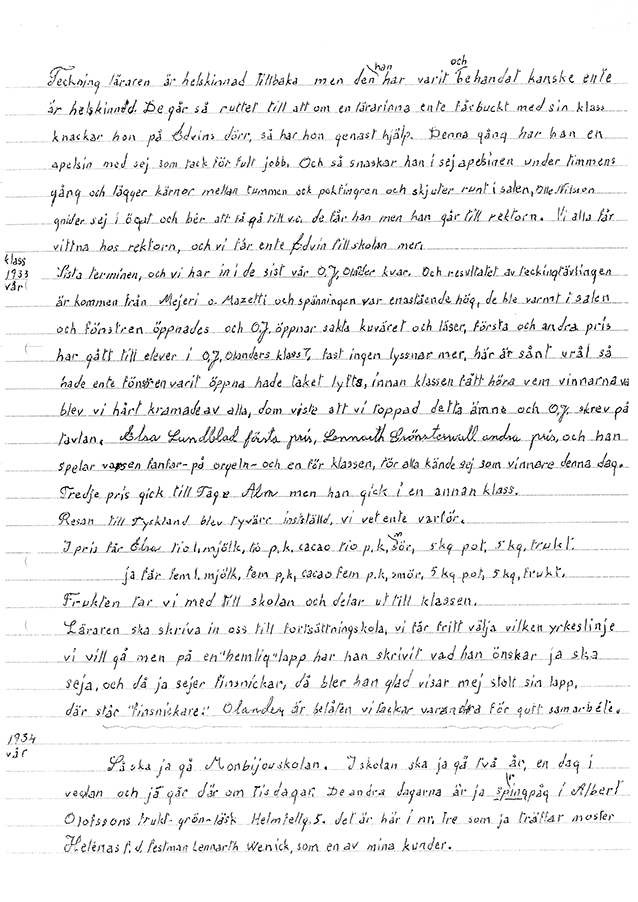 Teckning läraren är helskinnad tillbaka men den han har varit och behandat kanske ente
är helskinned. De går så ruttet till att om en lärarinna ente fårbuckt med sin klass
knackar hon på Edvins dörr, så har hon genast hjälp. Denna gång har han en
apelsin med sej som tack för fult jobb. Och så snaskar han i sej apelsinen under timmens
gång och lägger kärnor mellan tummen och pekfingren och skjuter runt i salen, Olle Nilsson
gnider sej i ögat och bér att få gå till v.c. de får han men han går till rektorn. Vi alla får
vittna hos rektorn, och vi får ente Edvin till skolan mer.
klass
1933
vår
Sista terminen, och vi har in i de sist vår O.J. Olander kvar. Och resultatet av teckingtävlingen
är kommen från Mejeri o. Mazetti och spänningen var enastående hög, de ble varmt i salen
och fönstren öppnades och O.J. öppnar sakta kuväret och läser, första och andra pris
har gått till elever i O.J. Olanders klass 7, fast ingen lyssnar mer, här är sånt vrål så
hade ente fönstren varit öppna hade taket lyfts, innan klassen fått höra vem vinnarna va
blev vi hårt kramade av alla, dom viste att vi toppad detta ämne och O.J. skrev på
tavlan. Elsa Lundblad första pris, Lennarth Grönstervall andra pris, och han
spelar vapsen fanfar- på orgeln- och en för klassen, för alla kände sej som vinnare denna dag.
Tredje pris gick till Tage Alm men han gick i en annan klass.
Resan till Tyskland blev tyvärr inställd, vi vet ente varför.
I pris får Elsa tio l. mjölk, tio p.k. cacao tio p.k. smör, 5 kg pot, 5 kg, frukt.
ja får fem l. mjölk, fem p.k, cacao fem p.k, smör, 5 kg pot, 5 kg, frukt.
Frukten tar vi med till skolan och delar ut till klassen.
Läraren ska skriva in oss till fortsättningskola, vi får fritt välja vilken yrkeslinje
vi vill gå men på en "hemlig" lapp har han skrivit vad han önskar ja ska
seja, och då ja sejer finsnickar, då bler han glad visar mej stolt sin lapp,
där står "finsnickare." Olander är belåten vi tackar varandra för gott samarbéte.
1934
vår
Så ska ja gå Monbijouskolan. I skolan ska ja gå två år, en dag i
veckan och ja går där om tisdagar. De andra dagarna är ja springpåg i Albert
Olofssons frukt-grön-läsk Helmfeltg. 5. det är här i nr. tre som ja träffar moster
Helénas f. d. festman Lennarth Wenick, som en av mina kunder.